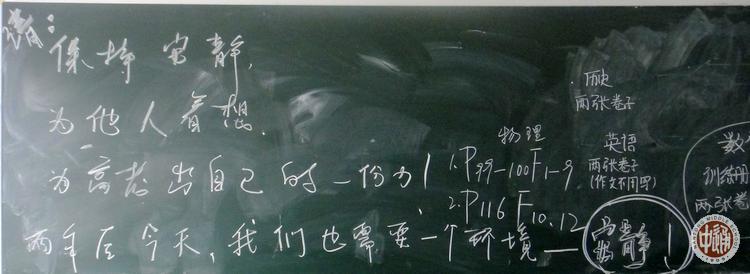 请:
保持安静,
为他人着想.
为高考出自己的一份力!
两年后今天,我们也需要一个环境—静!
物理
1.P99-100 F1-9
2.P116 F10.12
·历史
两张卷子
英语
两张卷子
(作文不用写)
数
训练册
两张卷